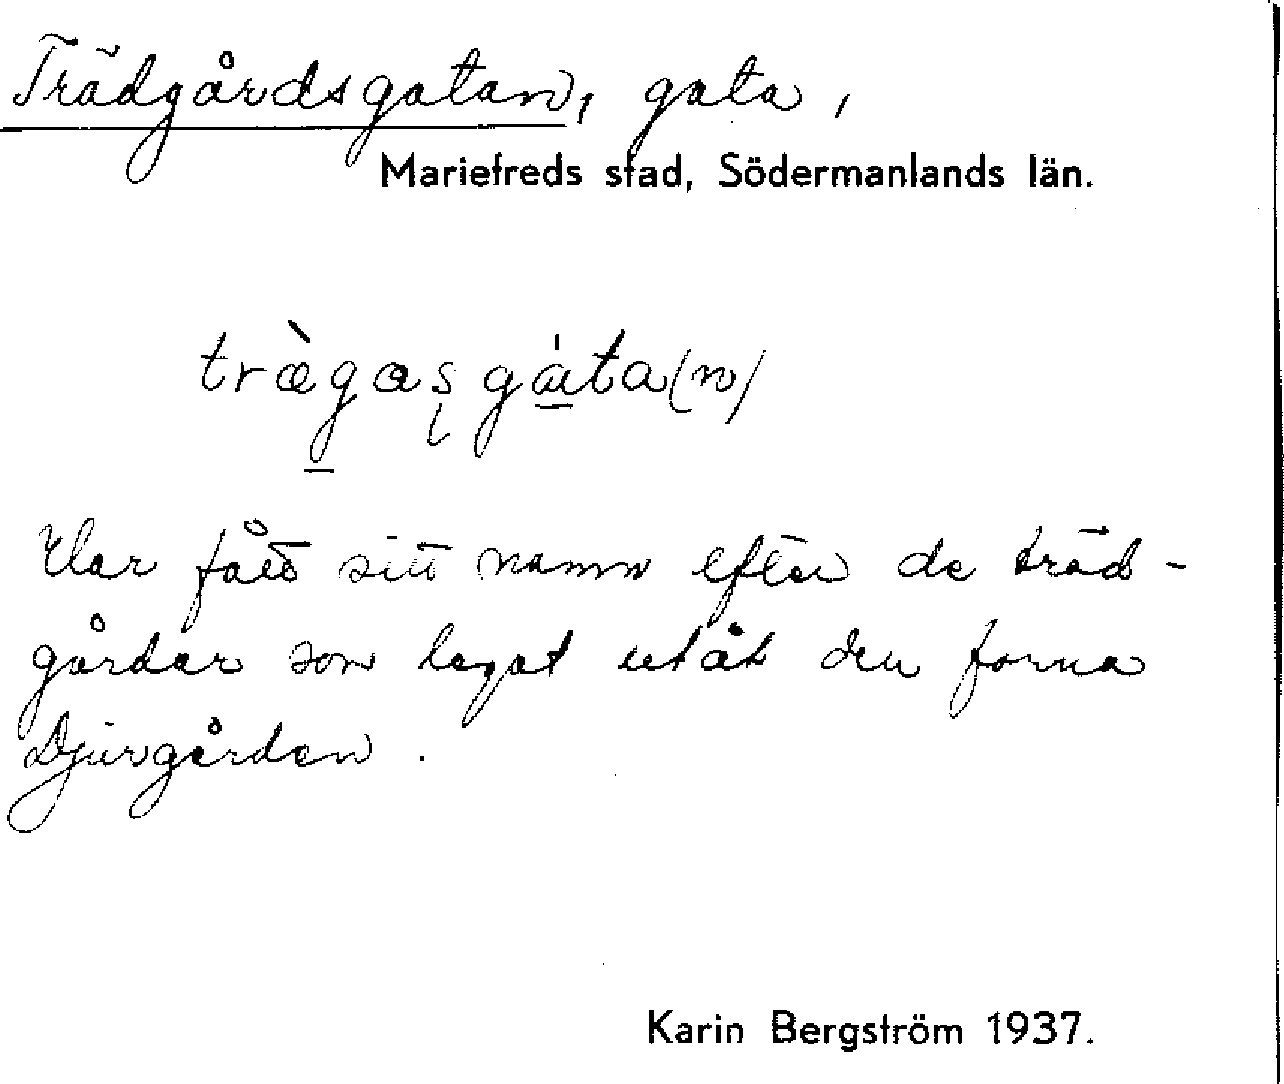 Trädgårdsgatan, gata,
Mariefreds stad, Södermanlands län.
træ̀gas̨ gáta(n)
Har fått sitt namn efter de träd-
gårdar som legat utåt den forna
Djurgården.
Karin Bergström 1937.